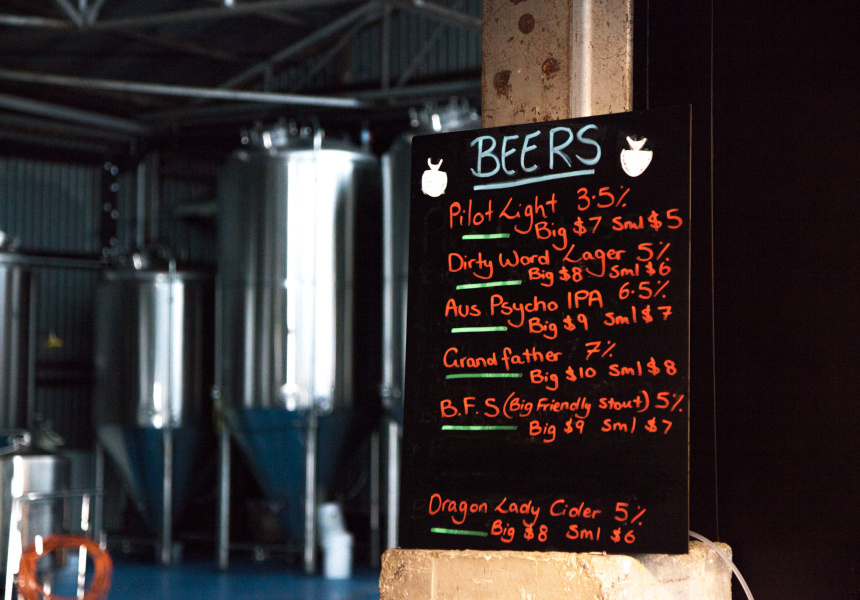 BEERS
Pilot Light 3.5%
Big $7 Sml $5
Dirty Word Lager 5%
Big $8 Sml $6
Aus Psycho IPA 6.5%
Big $9 Sml $7
Grandfather 7%
Big $10 Sml $8
B.F.S (Big Friendly Stout) 5%
Big $9 Sml $7
Dragon Lady Cider 5%
Big $8 Sml $6